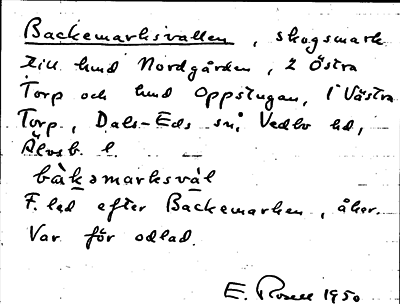 Backemarksvallen, skogsmark
till hmd Nordgården, i Östra
Torp och hmd Oppstugan, i Västra
Torp, Dals-Eds sn, Vedbo hd,
Älvsb. l.
bàkəmarksvàl
F. led efter Backemarken, åker.
Var för odlad.
E. Rosell 1950